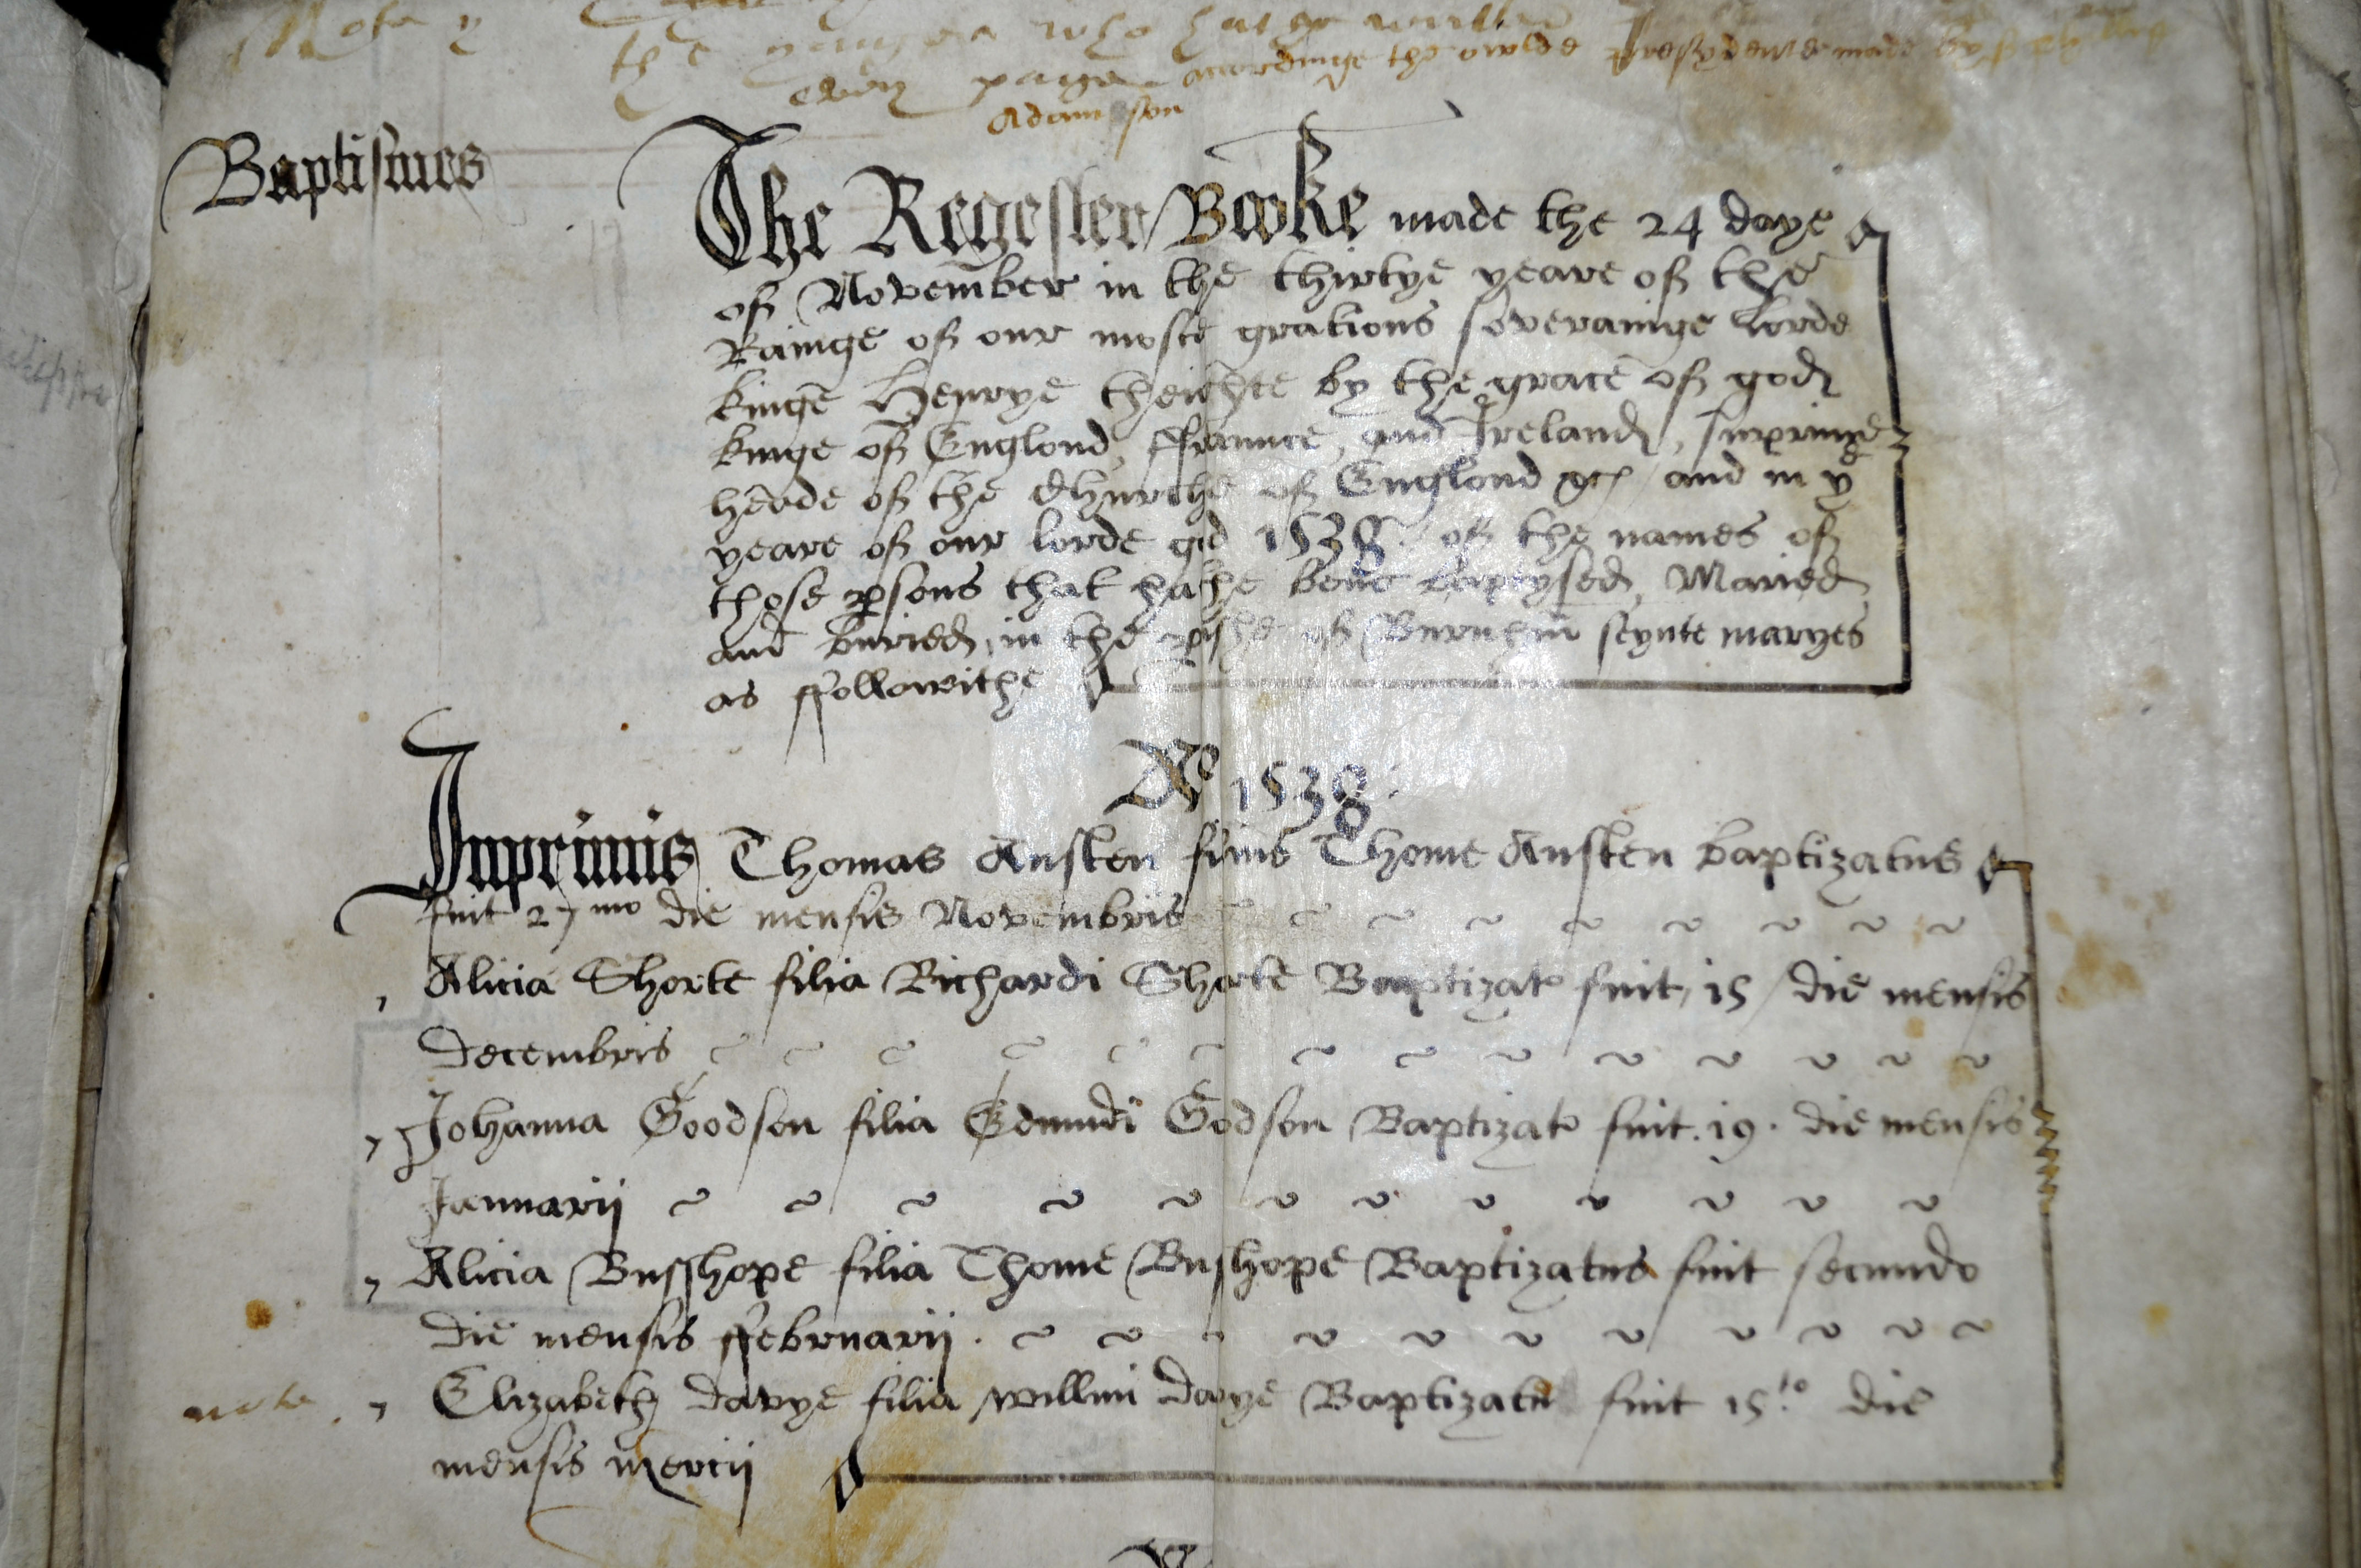 Nota y
the younger who hathe written
every page accordinge the owlde presydente made by
Adamson
Baptismes
The Regester Booke made the 24 daye
of November in the thirtye yeare of the
Rainge of our moste gratious soverainge Lorde
kinge Henrye theighte by the grace of god
kinge of Englond, ffraunce, and Ireland, supreme
heade of the Churche of Englond &c, and in ye
yeare of our lorde god 1538. of the names of
those psons that hathe bene baptysed, Maried
and buried, in the pishe of Burnhm seynte maryes
as ffollowithe
Ao 1538.
Inprimis Thomas Austen filius Thome Austen baptizatus
fuit 27mo die mensis Novembris
Alicia Shorte filia Richardi Shorte Baptizata fuit, 15 / die mensis
Decembris
Johanna Goodson filia Edmudi Godson Baptizata fuit. 19. die mensis
Januarij
Alicia Busshope filia Thome Bushope Baptizatus fuit secundo
die mensis ffebruarij.
note
Elizabeth Davye filia willmi Davye Baptizata fuit 15to die
mensis mercij